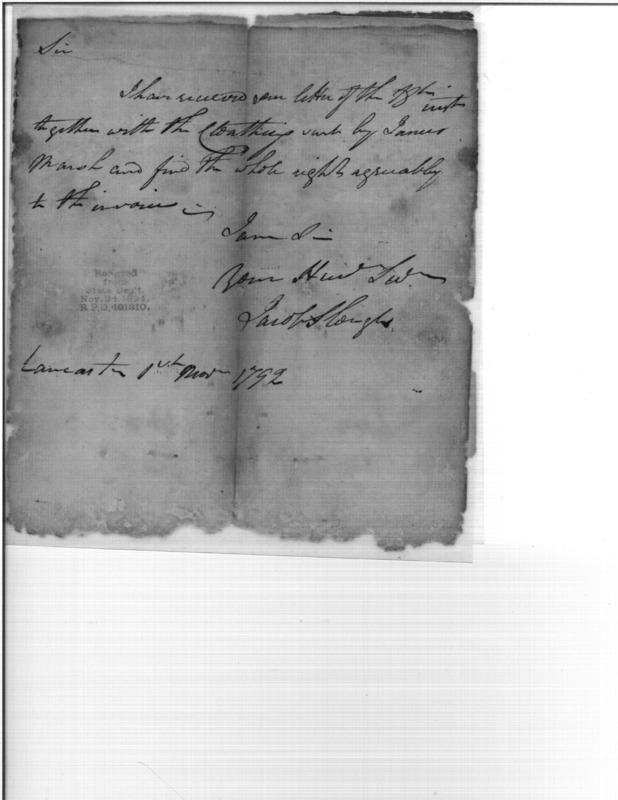 Sir
I have received your letter of the inst
together with the Cloathing sent by James
Marsh and find the whole right agreeably
to the invoice
I am Sir
Your Hue Ser
Jacob Slough
Received
from
State Dep't.
Nov. 24, 1894.
R.P.O. 401310.
Lancaster 1st Nov 1792